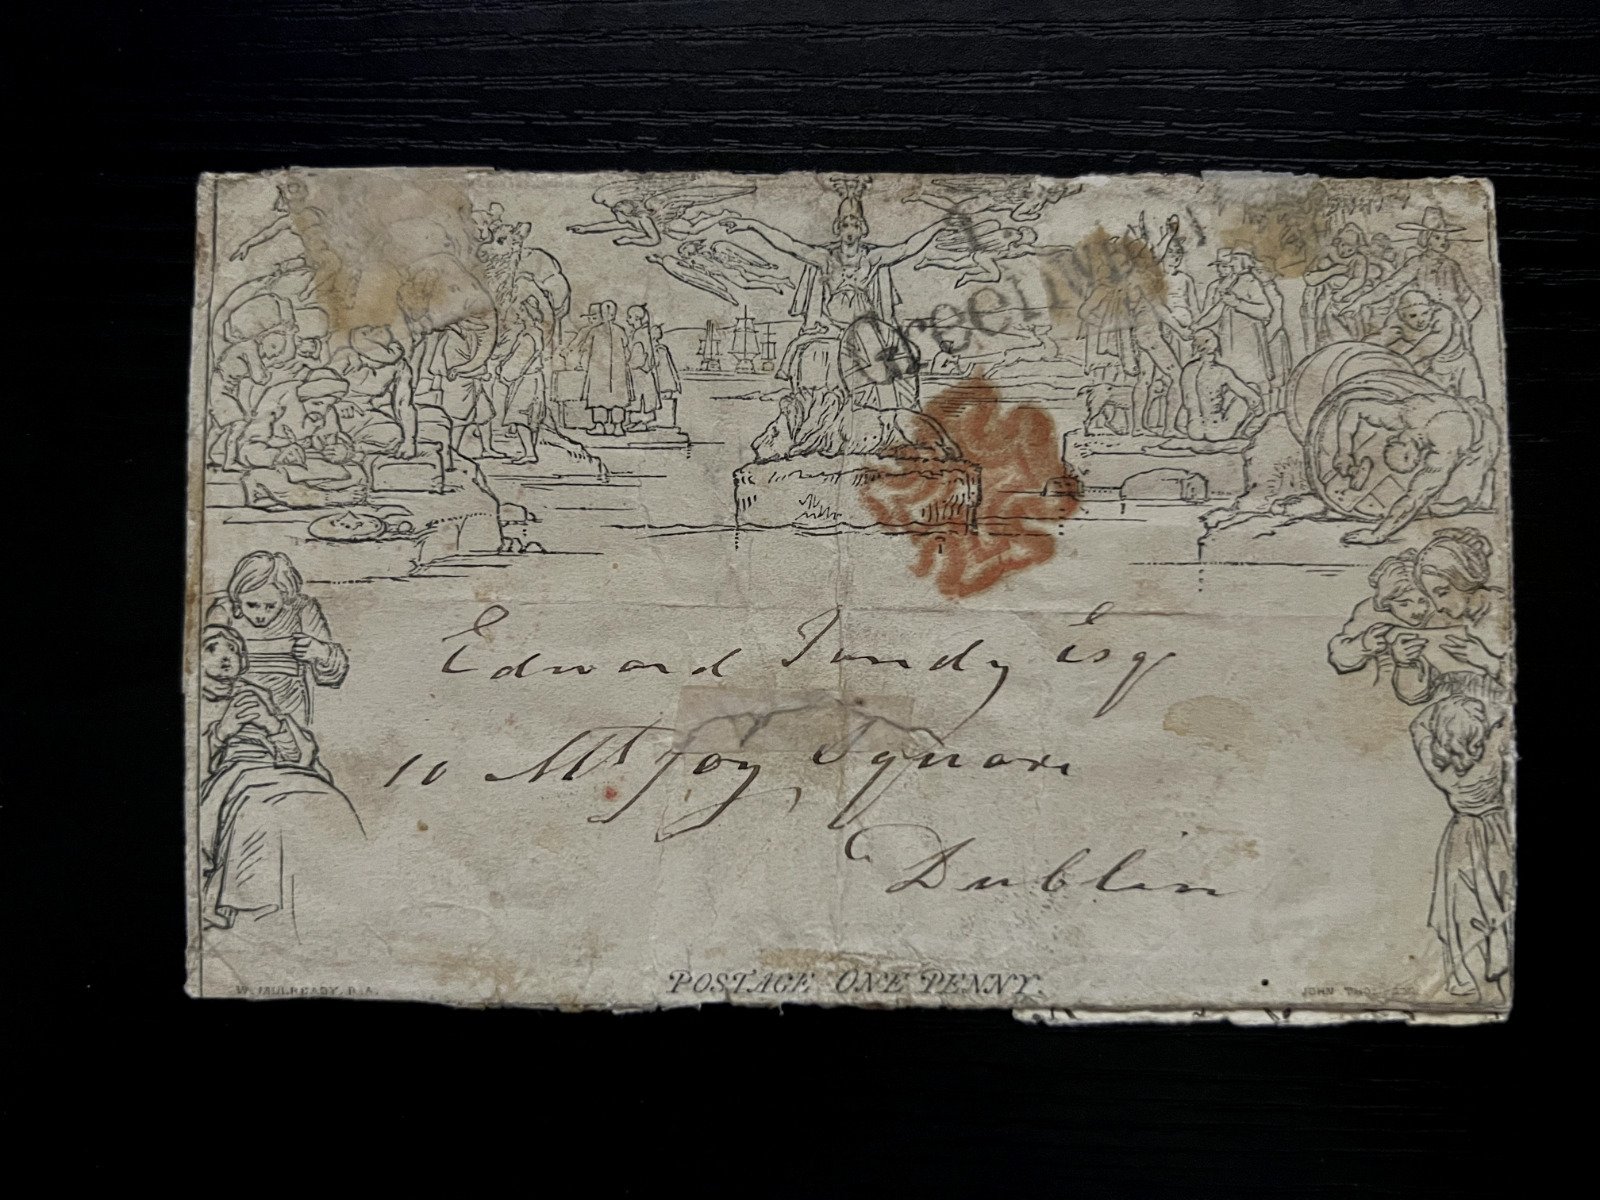 Greenwich
Edward Tandy Esq
10 Mt Joy Square
Dublin
POSTAGE ONE PENNY.
W. MULREADY. R.A.
JOHN